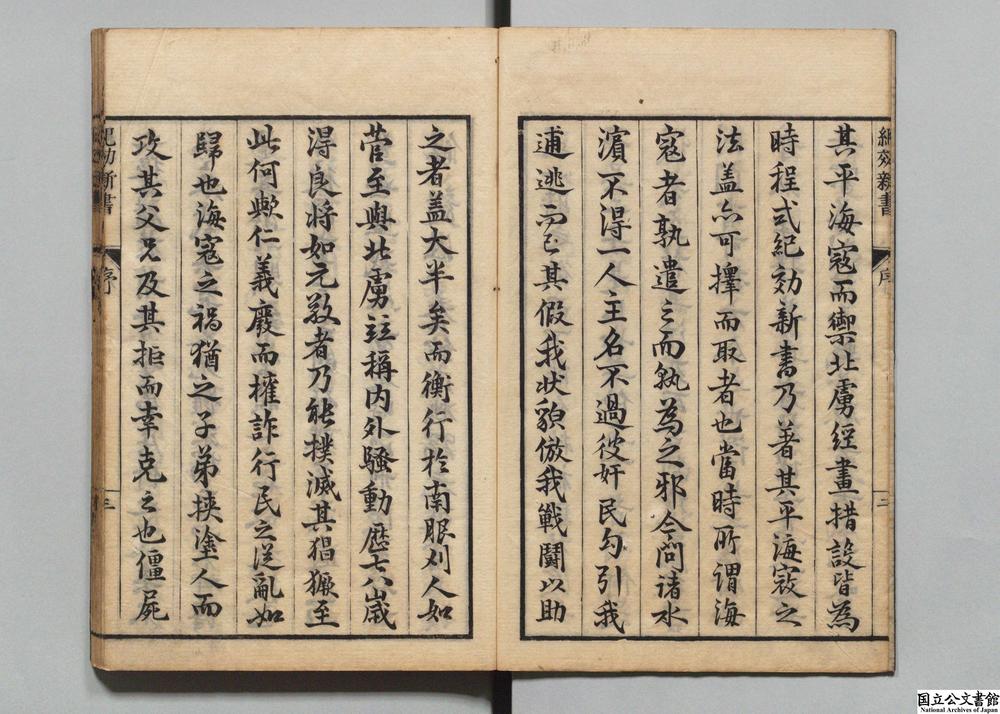 紀效新書
序
二
其平海寇而禦北虜經畫措設皆為
時程式紀効新書乃著其平海寇之
法盖亦可擇而取者也當時所謂海
寇者孰遣之而孰為之邪今問諸水
濱不得一人主名不過彼奸民勾引我
逋逃而已其假我狀貌倣我戰鬪以助
之者盖大半矣而衡行於南服刈人如
菅至與北虜竝稱内外騷動歴七八歲
得良將如元敬者乃能撲滅其猖獗至
此何歟仁義廢而攉詐行民之從亂如
歸也海寇之禍猶之子弟挾塗人而
攻其父兄及其拒而幸克之也僵屍
紀効新書
序
三
国立公文書館
National Archives of Japan